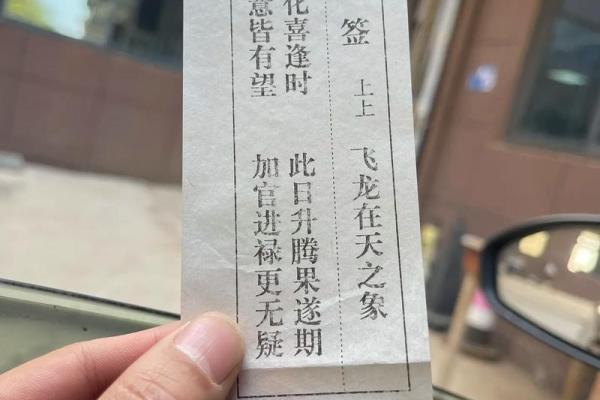 签 上上 飞龙在天之象
化喜逢时 此日升腾果遂期
意皆有望 加官进禄更无疑